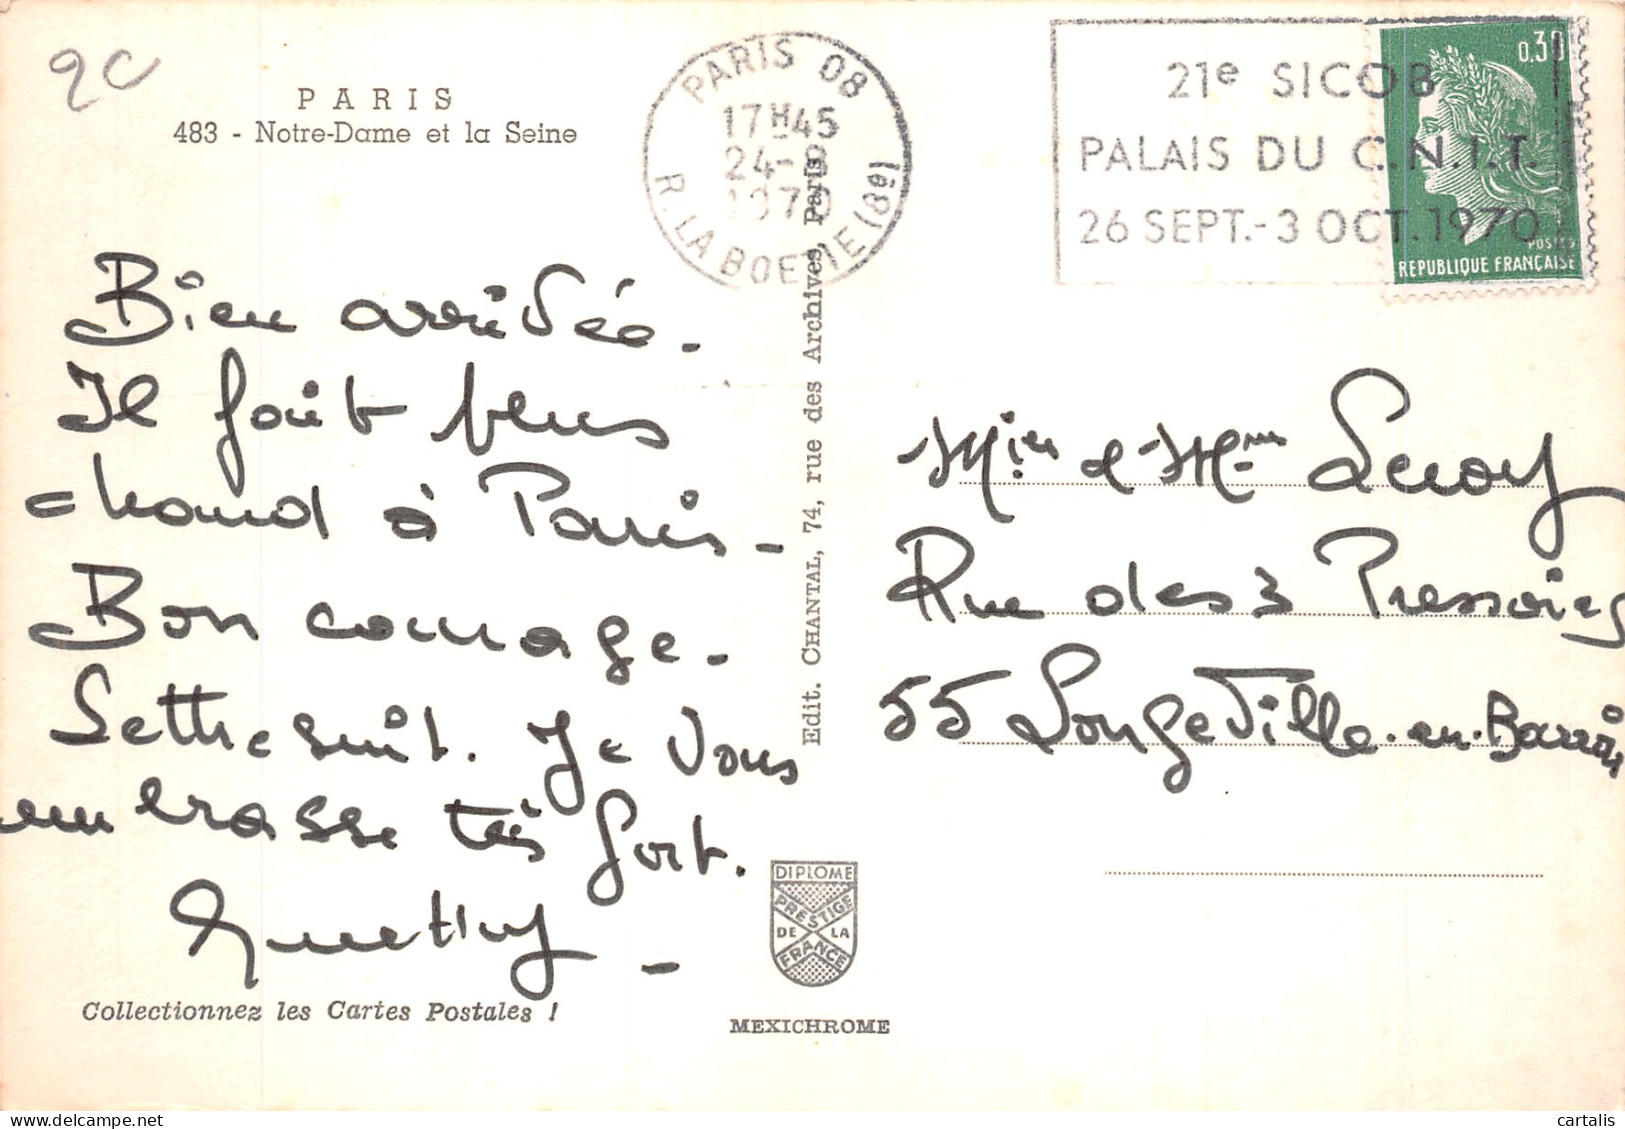 2C
PARIS
483 - Notre-Dame et la Seine
PARIS 08
17H45
24-8
1970
R. LA BOETIE (8e)
21e SICOB
PALAIS DU C.N.I.T.
26 SEPT.-3 OCT.1970
0,30
POSTES
REPUBLIQUE FRANÇAISE
Bien arrivée.
Il fait plus
chaud à Paris.
Bon courage.
Lettre suit. Je vous
embrasse très fort.
Edit. CHANTAL, 74, rue des Archives, Paris
Mr et Mme Leroy
Rue des 3 Pressoirs
55 Longeville-en-Barrois
DIPLOME
PRESTIGE
DE LA
FRANCE
Collectionnez les Cartes Postales !
MEXICHROME
cartalis